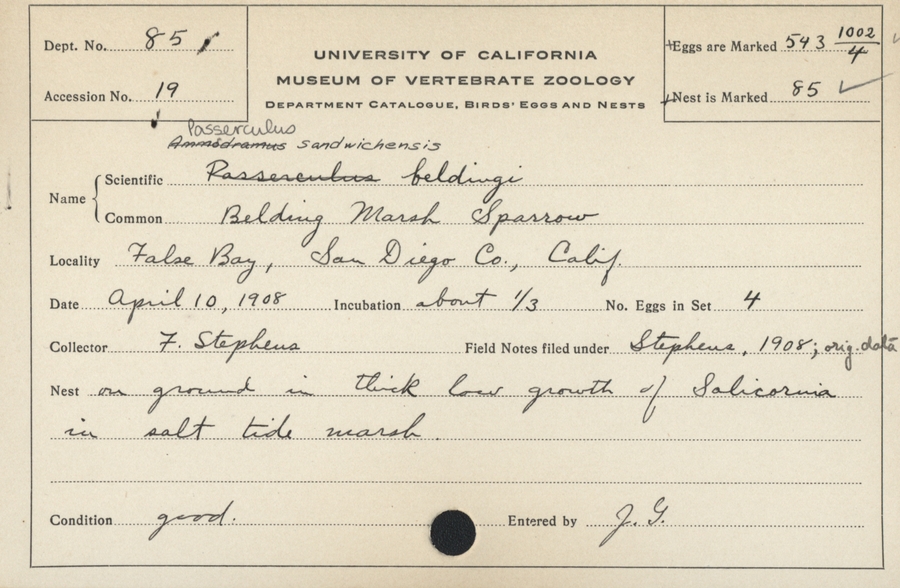 Dept. No. 85
Accession No. 19
UNIVERSITY OF CALIFORNIA
MUSEUM OF VERTEBRATE ZOOLOGY
DEPARTMENT CATALOGUE, BIRDS' EGGS AND NESTS
Eggs are Marked 543 1002/4
Nest is Marked 85 ✓
Passerculus
Ammodramus sandwichensis
Name { Scientific Passerculus beldingi
Common Belding Marsh Sparrow
Locality False Bay, San Diego Co., Calif.
Date April 10, 1908 Incubation about 1/3 No. Eggs in Set 4
Collector F. Stephens Field Notes filed under Stephens, 1908; orig. data
Nest on ground in thick low growth of Salicornia
in salt tide marsh.
Condition good. Entered by J. G.